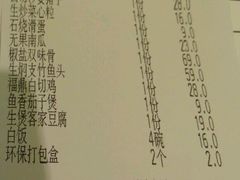 生炒菜心粒 1份 28.0
石烧滑蛋 1份 16.0
无果南瓜 1份
椒盐双味骨 1份 23.0
生焖支竹鱼头 1份 69.0
福鼎白切鸡 1份 59.0
鱼香茄子煲 1份 9.0
生煲客家豆腐 1份 19.0
白饭 4碗 16.0
环保打包盒 2个 2.0